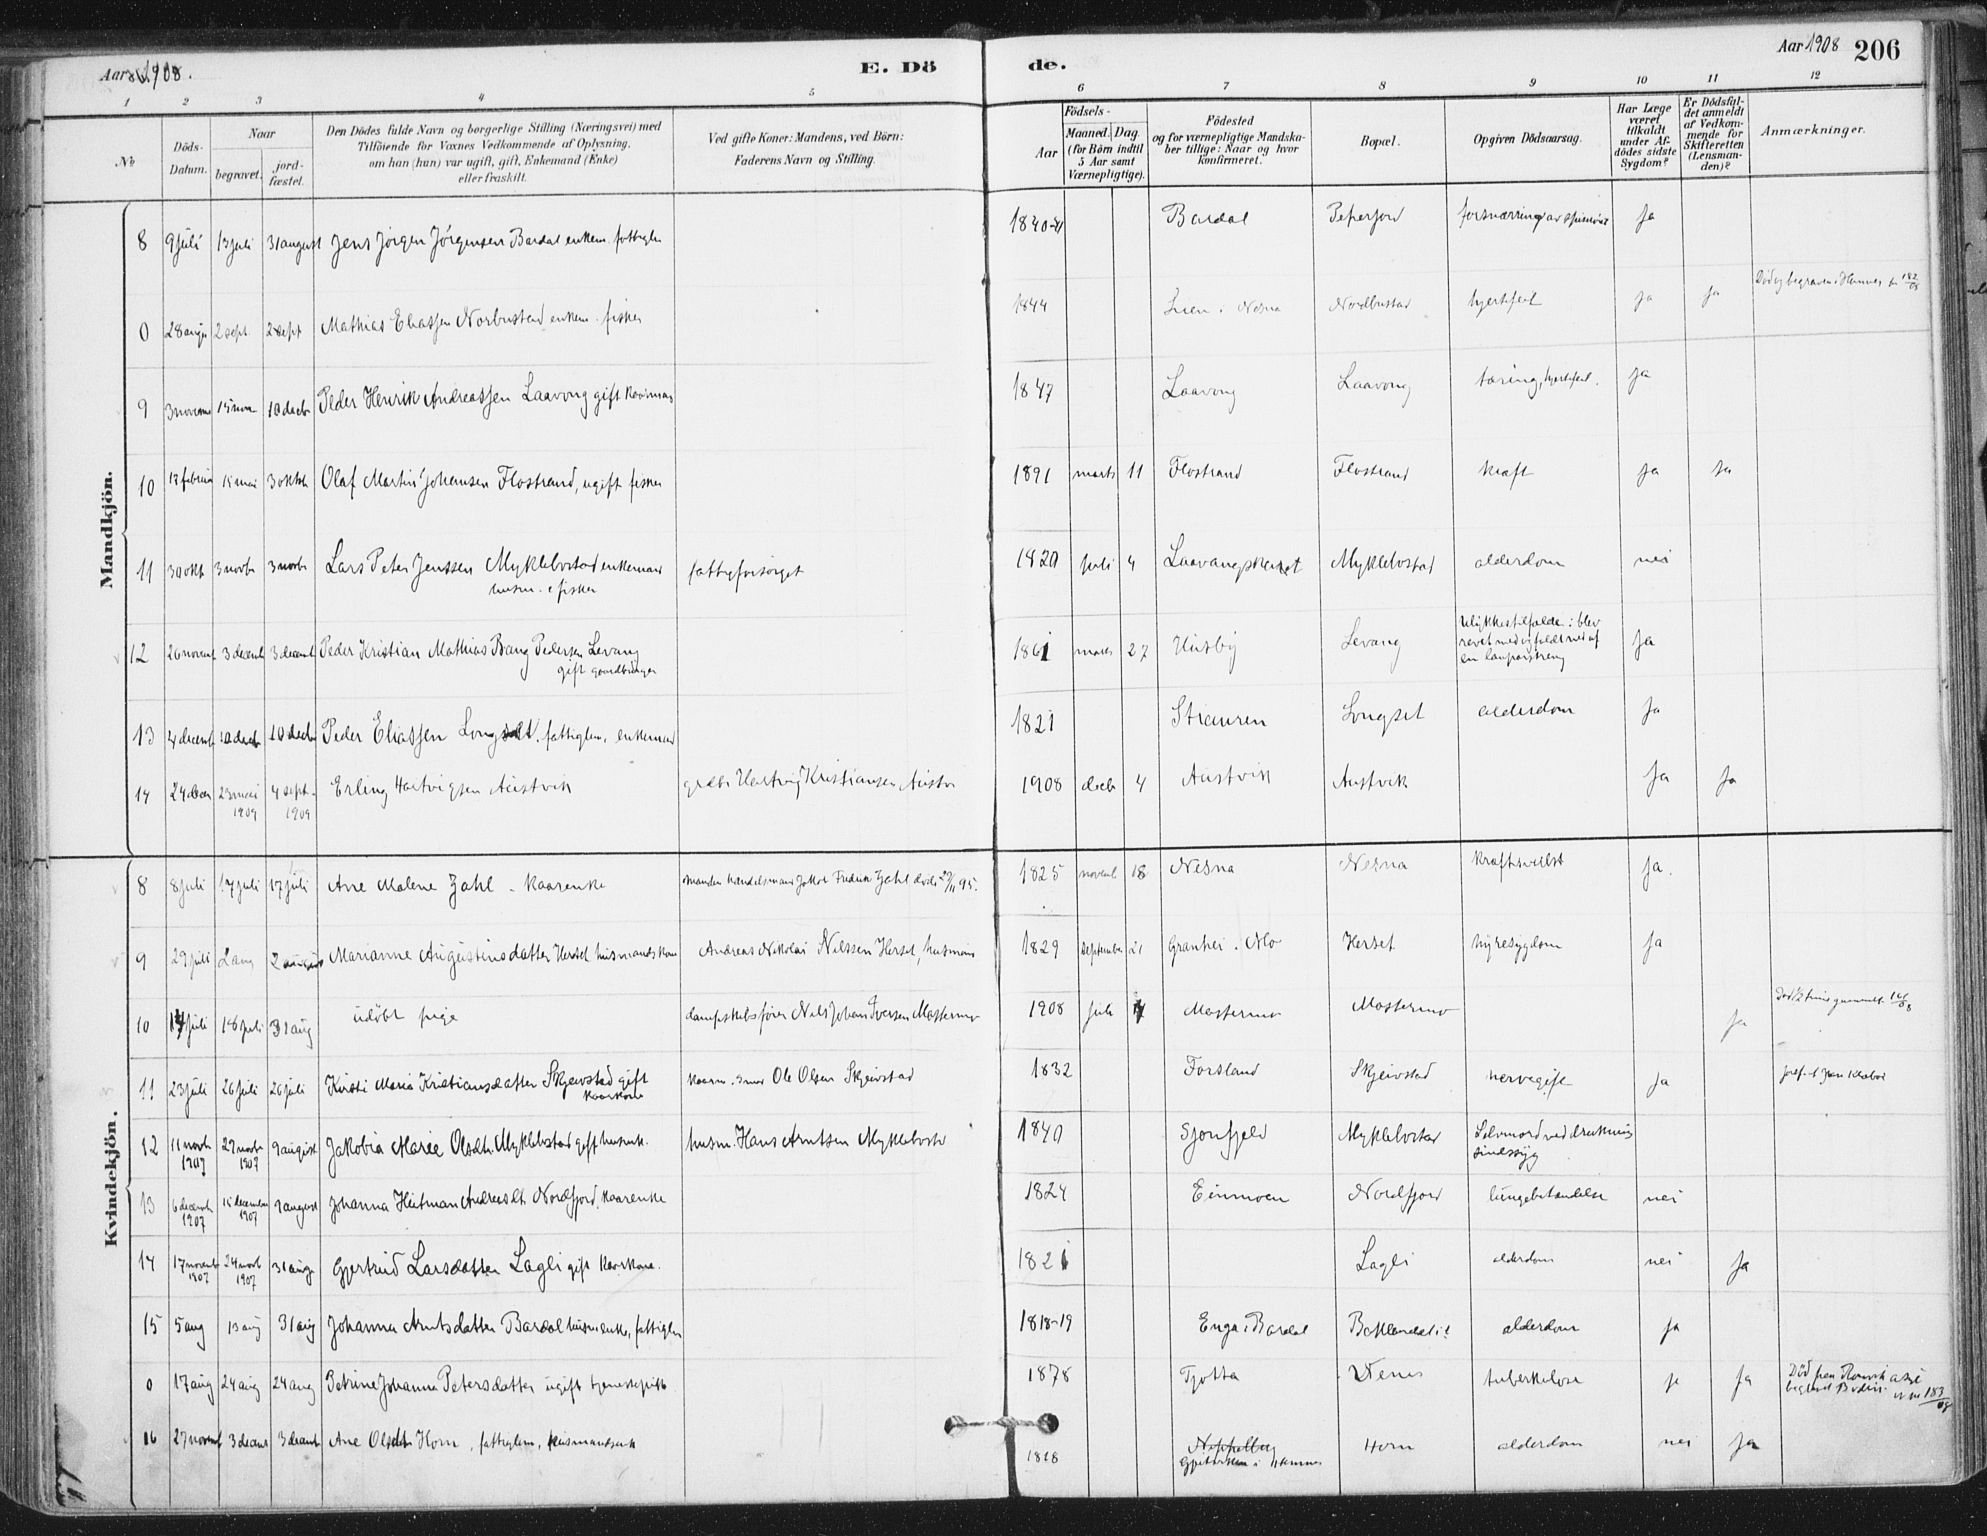 Aar 1908.
E. Dö
de.
Aar 1908 206
1 2 3 4 5 6 7 8 9 10 11 12
No
Döds-Datum.
Naar
begravet.
jord-fæstet.
Den Dödes fulde Navn og borgerlige Stilling (Næringsvei) med
Tilföiende for Voxnes Vedkommende af Oplysning,
om han (hun) var ugift, gift, Enkemand (Enke)
eller fraskilt.
Ved gifte Koner: Mandens, ved Börn:
Faderens Navn og Stilling.
Födsels-
Aar
Maaned. Dag.
(for Børn indtil
5 Aar samt
Værnepligtige).
Födested
og for værnepligtige Mandska-
ber tillige: Naar og hvor
konfirmeret.
Bopæl.
Opgiven Dödsaarsag.
Har Læge
været
tilkaldt
under Af-
dödes sidste
Sygdom?
Er Dödsfal-
det anmeldt
af Vedkom-
mende for
Skifteretten
(Lensman-
den)?
Anmærkninger.
Mandkjön.
8 9 juli 13 juli 31 august Jens Jörgen Jörgensen Bardal enkem. fattiglem 1840-41 Bardal ja
0 28 aug 2 sept. 2 sept Mathias Eliassen Norbustad enkem. fisker 1844 i Nesna Nordbustad hjertefeil ja ja
9 3 novemb 15 nov 10 decbr Peder Henrik Andreassen Laavong gift kaarman 1847 Laavong Laavong tæring, hjertefeil. ja
10 15 mai 3 oktob Olaf Martin Johansen Flostrand, ugift fisker 1891 marts 11 Flostrand Flostrand kræft ja ja
11 30 okt 3 novbr 3 novbr Lars Peter Jenssen Myklebostad enkemand
husm. & fisker fattigforsörget 1820 juli 4 Myklebostad alderdom nei
12 26 novemb 3 decemb 3 decemb Peder Kristian Mathias Bang Pedersen Levang
gift gaardbruger 1861 marts 27 Husby Levang ulykkestilfælde: blev
revet med og faldt ned af
en ja
13 4 decemb 10 decbr 10 decbr Peder Eliassen Longset. fattiglem, enkemand 1821 Stranren Longset alderdom ja
14 24 decbr 23 mai
1909 4 sept.
1909 Erling Hartvigsen Austvik Hartvig Kristiansen Austv 1908 decbr 4 Austvik Austvik ja ja
Kvindekjön.
8 8 juli 17 juli 17 juli Ane Malene Zahl - kaarenke manden handelsmand Jakob Fredrik Zahl döde 1825 novemb 18 Nesna Nesna kræftsvulst ja.
9 29 juli 2 aug 2 august Marianne Augustinusdatter Herset husmandskone Andreas Nikolai Nilssen Herset, husmand 1829 september 21 Granhei. Mo Herset nyresygdom ja
10 14 juli 18 juli 31 aug udöbt pige dampskibsförer Nils Johan Iversen Mastermo 1908 juli Mastermo Mastermo ja
11 23 juli 26 juli 26 juli Kirsti Maria Kristiansdatter Skjeivstad gift
kaarkone kaarm. Ole Olsen Skjeivstad 1832 Forsland Skjeivstad nervegigt ja
12 11 novbr
1907 27 novbr
1907 9 august Jakobia Marie Olsdtr. Myklebostad gift husmk. husm. Hans Arntsen Myklebostd 1840 Sjonfjeld Myklebostad Selvmord ved drukning
sindssyg
13 6 decemb
1907 15 december
1907 9 august Johanna Heitman Andreasdt. Nordfjord kaarenke 1824 Einmoen Nordfjord lungebetændelse nei
14 17 novemb
1907 24 novb
1907 31 aug Gjertrud Larsdatter Lagli gift kaarkone. 1821 Lagli alderdom nei ja
15 5 aug 13 aug 31 aug Johanna Arntsdatter Bardal husmenke, fattiglem 1818-19 Enga i Bardal alderdom ja
0 17 aug 24 aug 24 aug Petrine Johanna Petersdatter ugift tjenestepike 1878 Tjotta tuberkulose ja ja
16 27 novemb 3 decemb 3 decemb Ane Olsdt Horn, fattiglem, husmandsenk 1828 i Hemnes Horn alderdom nei ja